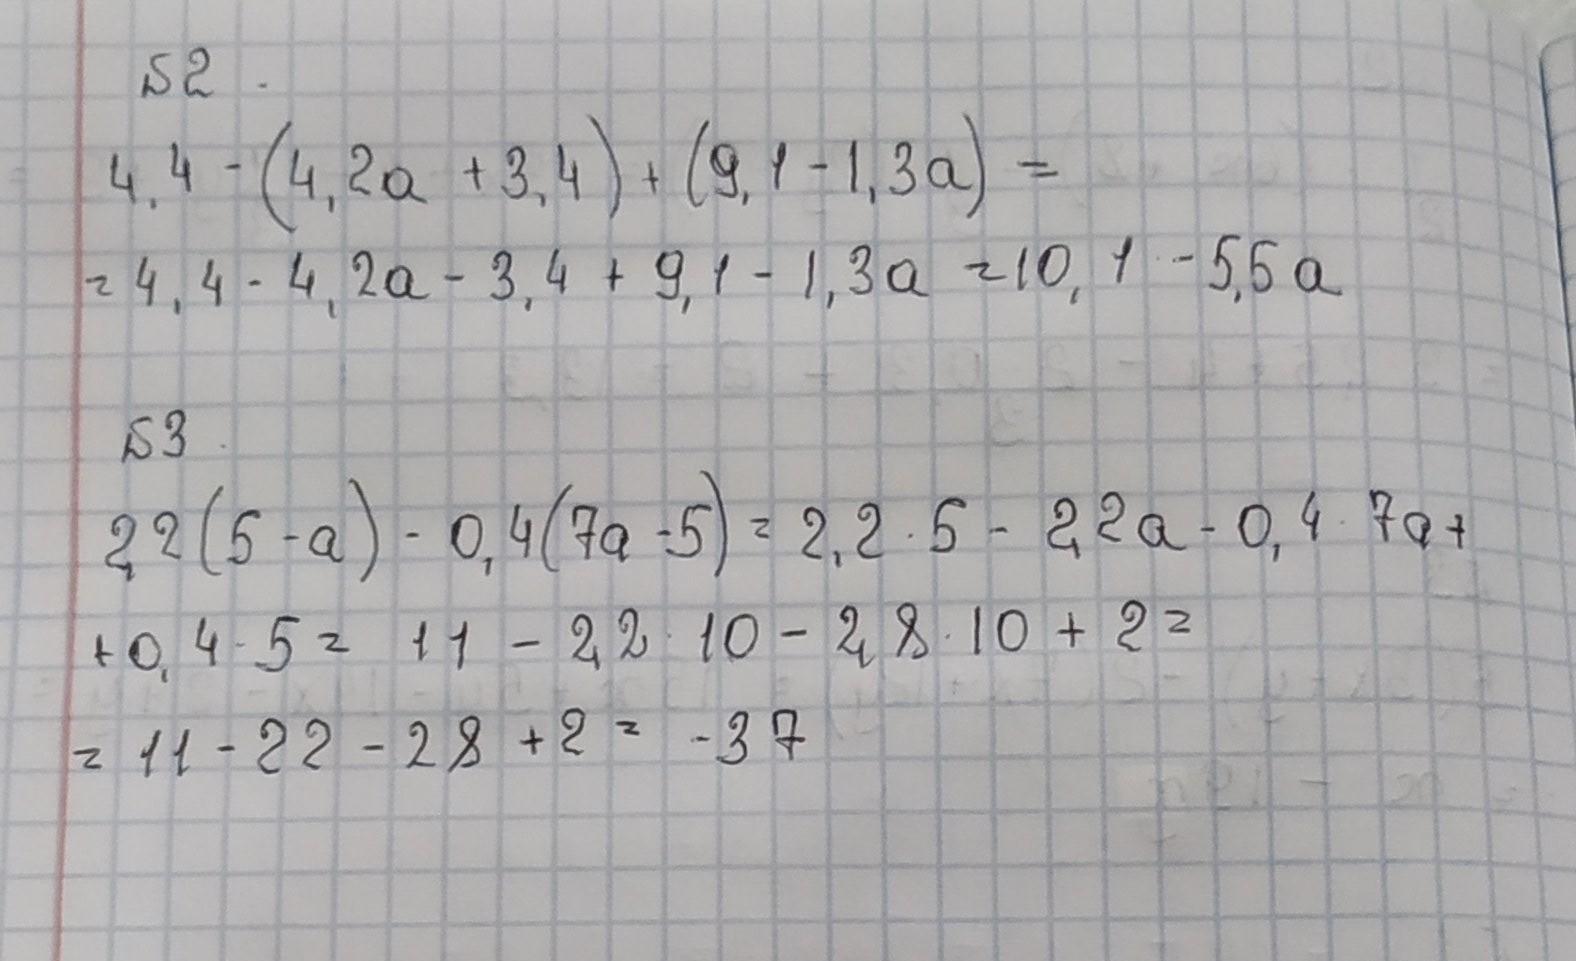 Б2.
4,4 - (4,2a + 3,4) + (9,1 - 1,3a) =
= 4,4 - 4,2a - 3,4 + 9,1 - 1,3a = 10,1 - 5,5a
Б3.
2,2(5 - a) - 0,4(7a - 5) = 2,2 · 5 - 2,2a - 0,4 · 7a +
+ 0,4 · 5 = 11 - 2,2 · 10 - 2,8 · 10 + 2 =
= 11 - 22 - 28 + 2 = -37